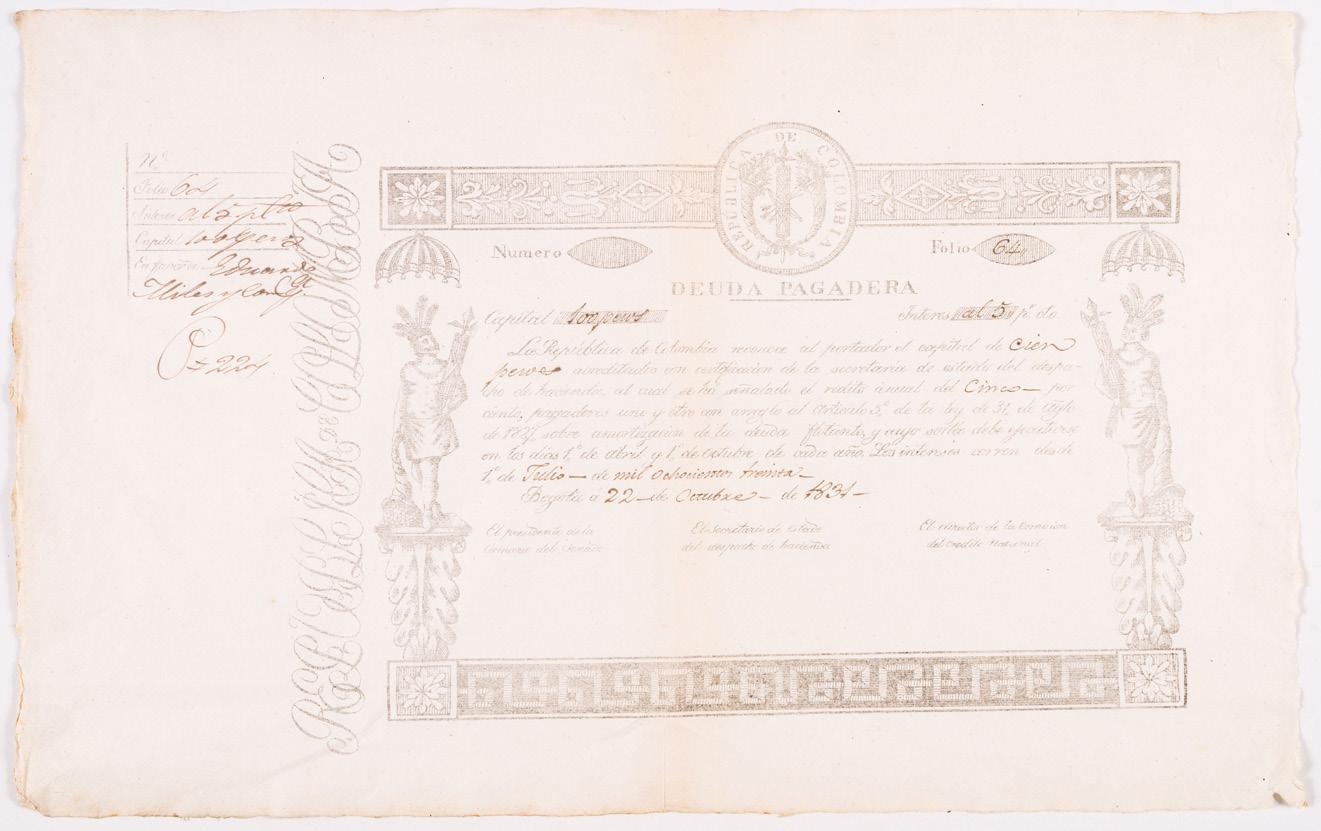 Nº
Folio 64
Interes al 5 pcto
Capital 100 pesos
En favor de Eduardo
Miles y Comp
Ps 224
REPUBLICA DE COLOMBIA
REPÚBLICA DE COLOMBIA
Numero
Folio 64
DEUDA PAGADERA
Capital 100 pesos
Interes al 5 p.r 0/0
La República de Colombia reconoce al portador el capital de Cien
pesos acreditado con certificacion de la secretaria de estado del despa-
cho de hacienda, al cual se ha señalado el redito anual del Cinco por
ciento, pagaderos uno y otro con arreglo al articulo 5.º de la ley de 31, de
de 1827, sobre amortizacion de la deuda flotante, y cuyo sorteo debe ejecutarse
en los dias 1.º de abril y 1.º de octubre de cada año. Los intereses corren desde
1.º de Julio — de mil ochocientos treinta —
Bogotá á 22 — de Octubre — de 1831 —
El presidente de la
Camara del Senado
El Secretario de Estado
del despacho de hacienda
El director de la Comision
del Credito Nacional